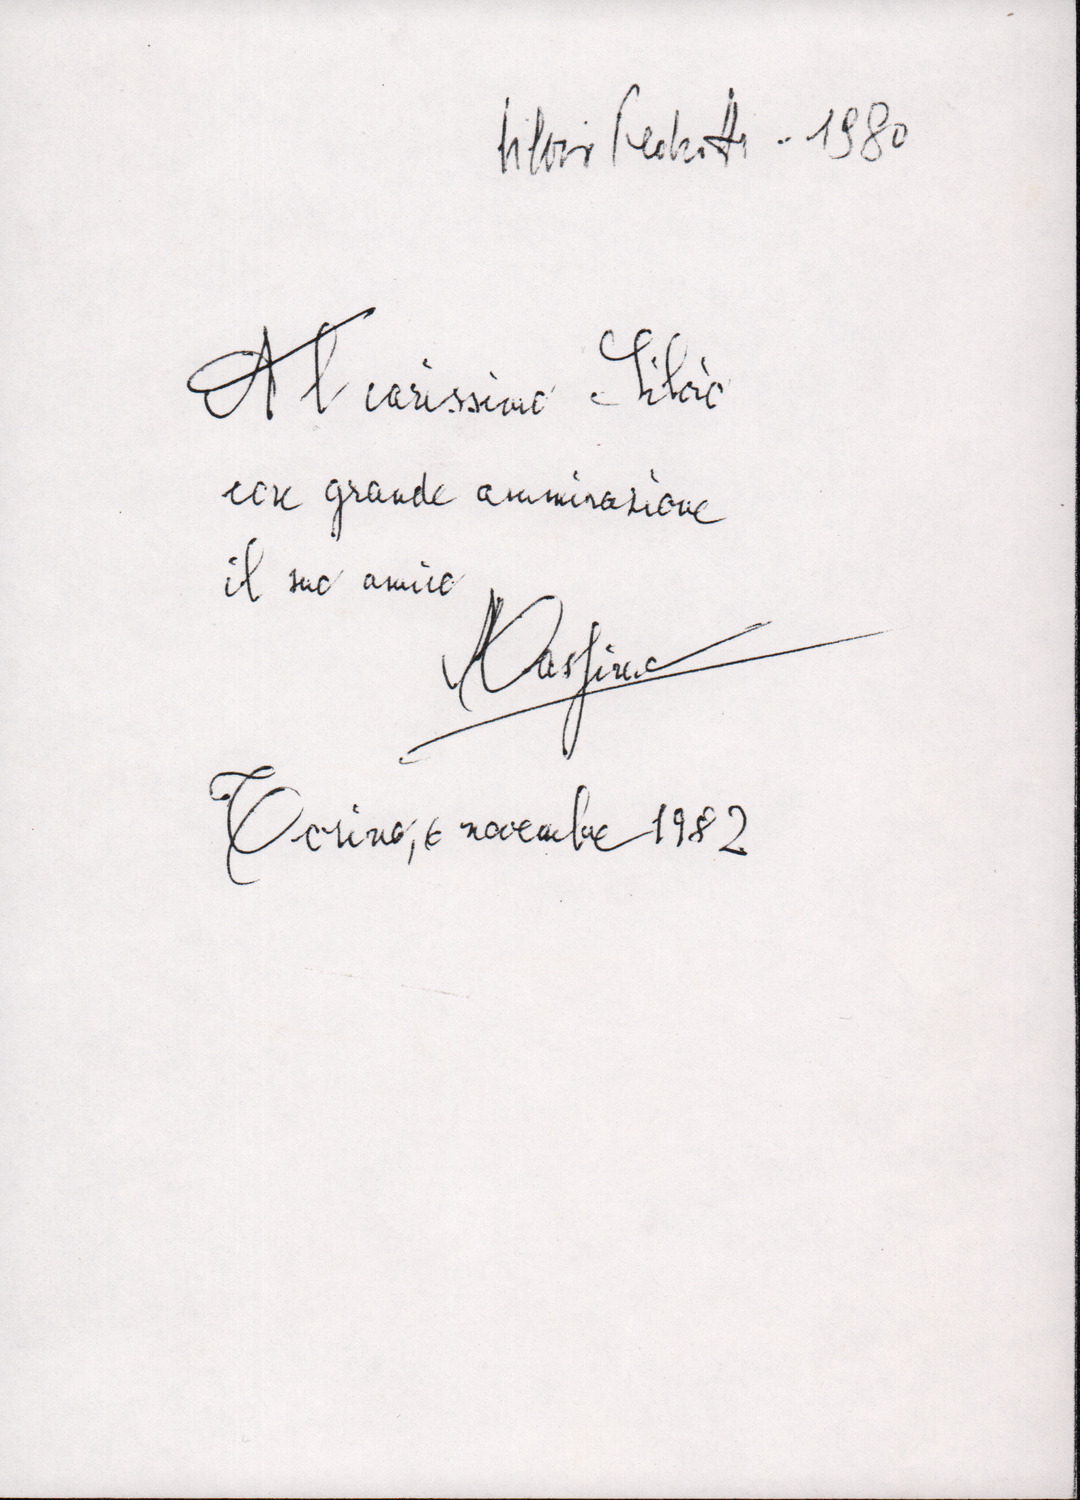 Silvio Pedrotti - 1980
Al carissimo Silvio
con grande ammirazione
il suo amico
Massimo
Torino, 6 novembre 1982